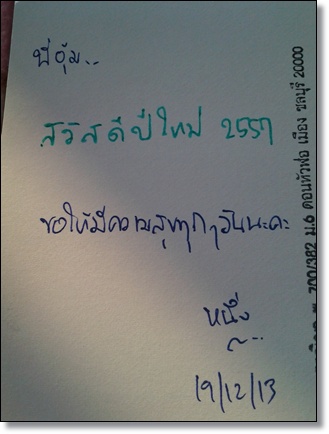 พี่อุ้ม..
สวัสดีปีใหม่ 2557
ขอให้มีความสุขทุกๆวันนะคะ
หนึ่ง
19/12/13
700/382 ม.6 ดอนหัวฬ่อ เมือง ชลบุรี 20000